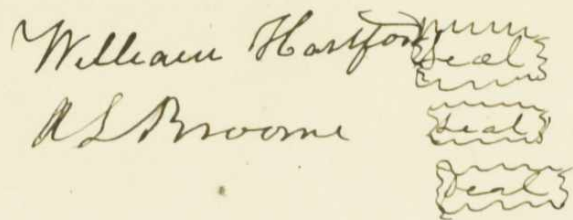 William Hartford Seal
A S Broome Seal
Seal